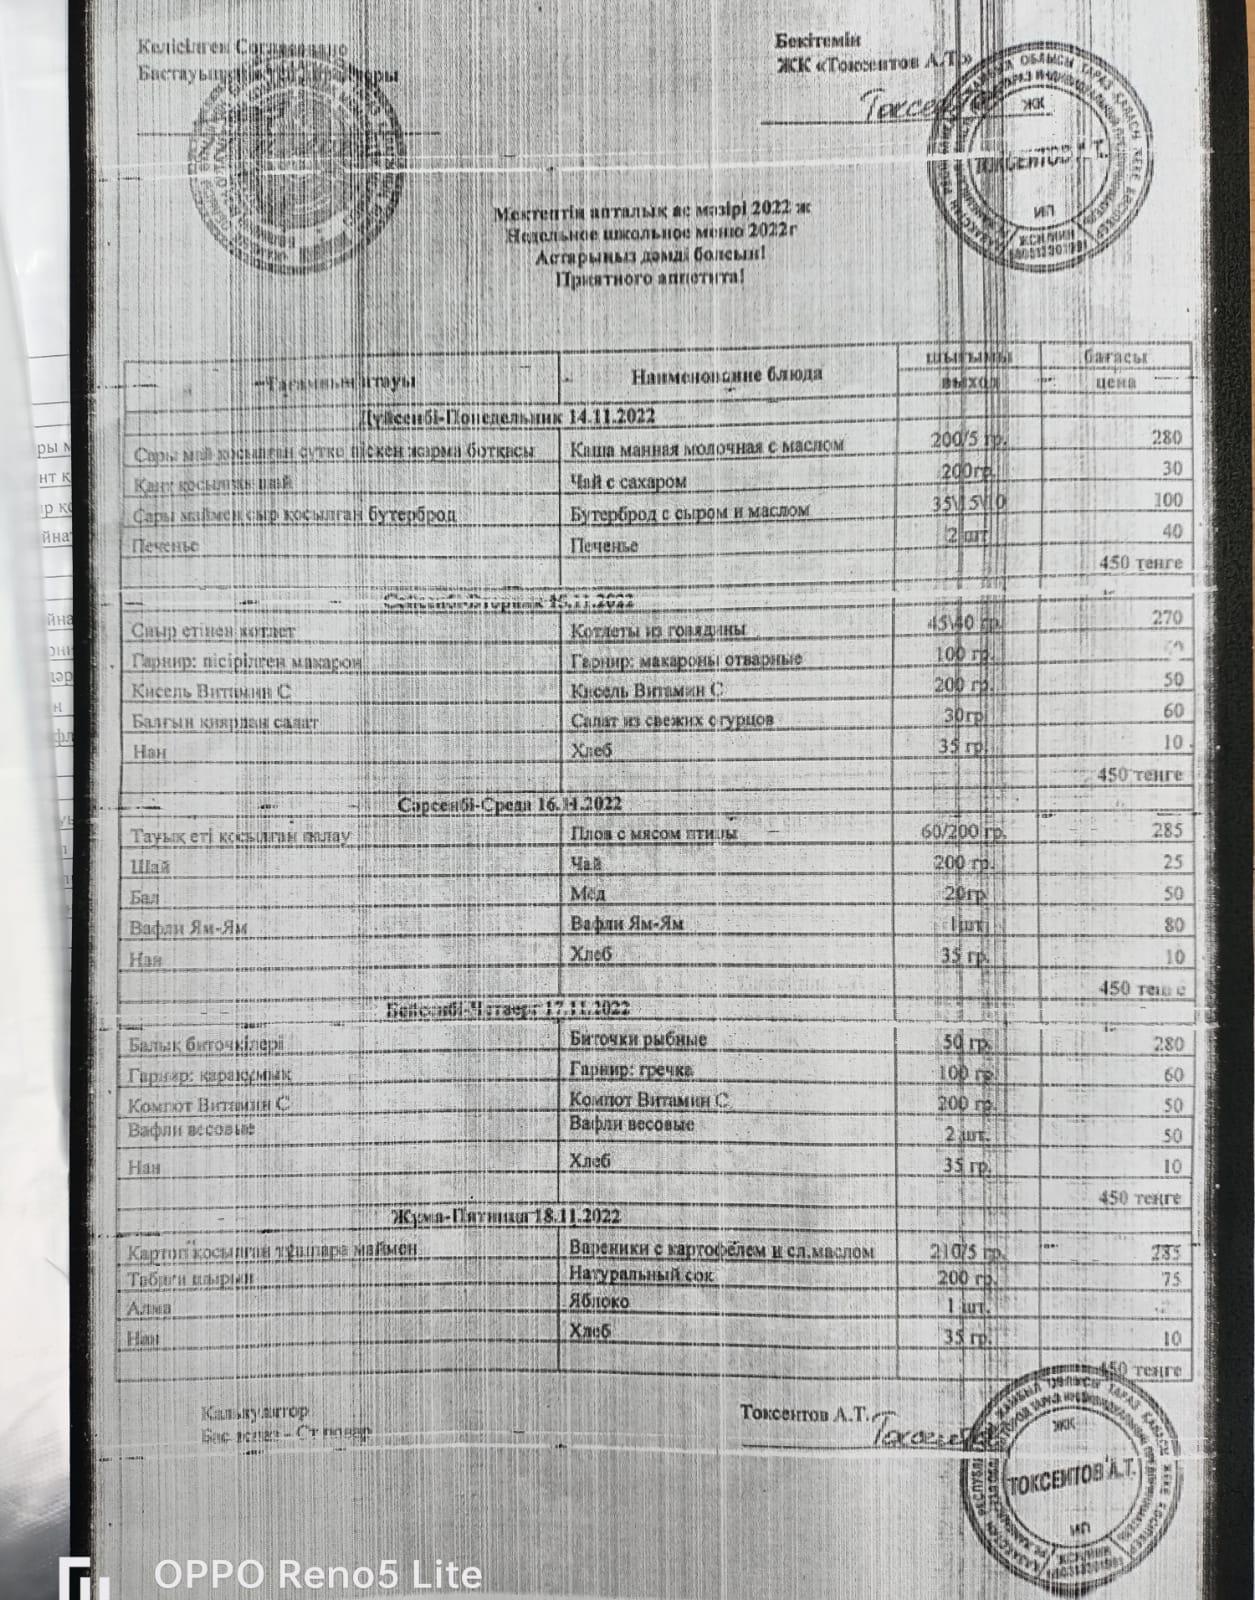 Келісілген Согласовано
Бекітемін
ЖК «Токсентов А.Т»
Токсентов
ЖК
ТОКСЕНТОВ А.Т.
ИП
Мектептің апталық ас мәзірі 2022 ж
Недельное школьное меню 2022г
Астарыңыз дәмді болсын!
Приятного аппетита!
Тағамның атауы Наименование блюда шығымы бағасы
выход цена
Дүйсенбі-Понедельник 14.11.2022
Сары май қосылған сүтке піскен жарма ботқасы Каша манная молочная с маслом 200/5 гр. 280
Қант қосылған шай Чай с сахаром 200гр. 30
Сары маймен сыр қосылған бутерброд Бутерброд с сыром и маслом 35\15\10 100
Печенье Печенье 2 шт 40
450 тенге
Сейсенбі-Вторник 15.11.2022
Сиыр етінен котлет Котлеты из говядины 45\40 гр. 270
Гарнир: пісірілген макарон Гарнир: макароны отварные 100 гр.
Кисель Витамин С Кисель Витамин С 200 гр. 50
Балғын қиярдан салат Салат из свежих огурцов 30гр 60
Нан Хлеб 35 гр. 10
450 тенге
Сәрсенбі-Среда 16.11.2022
Тауық еті қосылған палау Плов с мясом птицы 60/200 гр. 285
Шай Чай 200 гр. 25
Бал Мёд 20гр 50
Вафли Ям-Ям Вафли Ям-Ям 1шт 80
Нан Хлеб 35 гр. 10
450 тенге
Бейсенбі-Четверг 17.11.2022
Балық биточкілері Биточки рыбные 50 гр. 280
Гарнир: қарақұмық Гарнир: гречка 100 гр. 60
Компот Витамин С Компот Витамин С 200 гр. 50
Вафли весовые Вафли весовые 2 шт. 50
Нан Хлеб 35 гр. 10
450 тенге
Жұма-Пятница 18.11.2022
Картоп қосылған тұшпара маймен Вареники с картофелем и сл.маслом 210/5 гр. 285
Табиғи шырын Натуральный сок 200 гр. 75
Алма Яблоко 1 шт.
Нан Хлеб 35 гр. 10
450 тенге
Калькулятор Токсентов А.Т.
Бас аспаз - Ст повар Токсентов
ЖК
ТОКСЕНТОВ А.Т.
ИП
OPPO Reno5 Lite